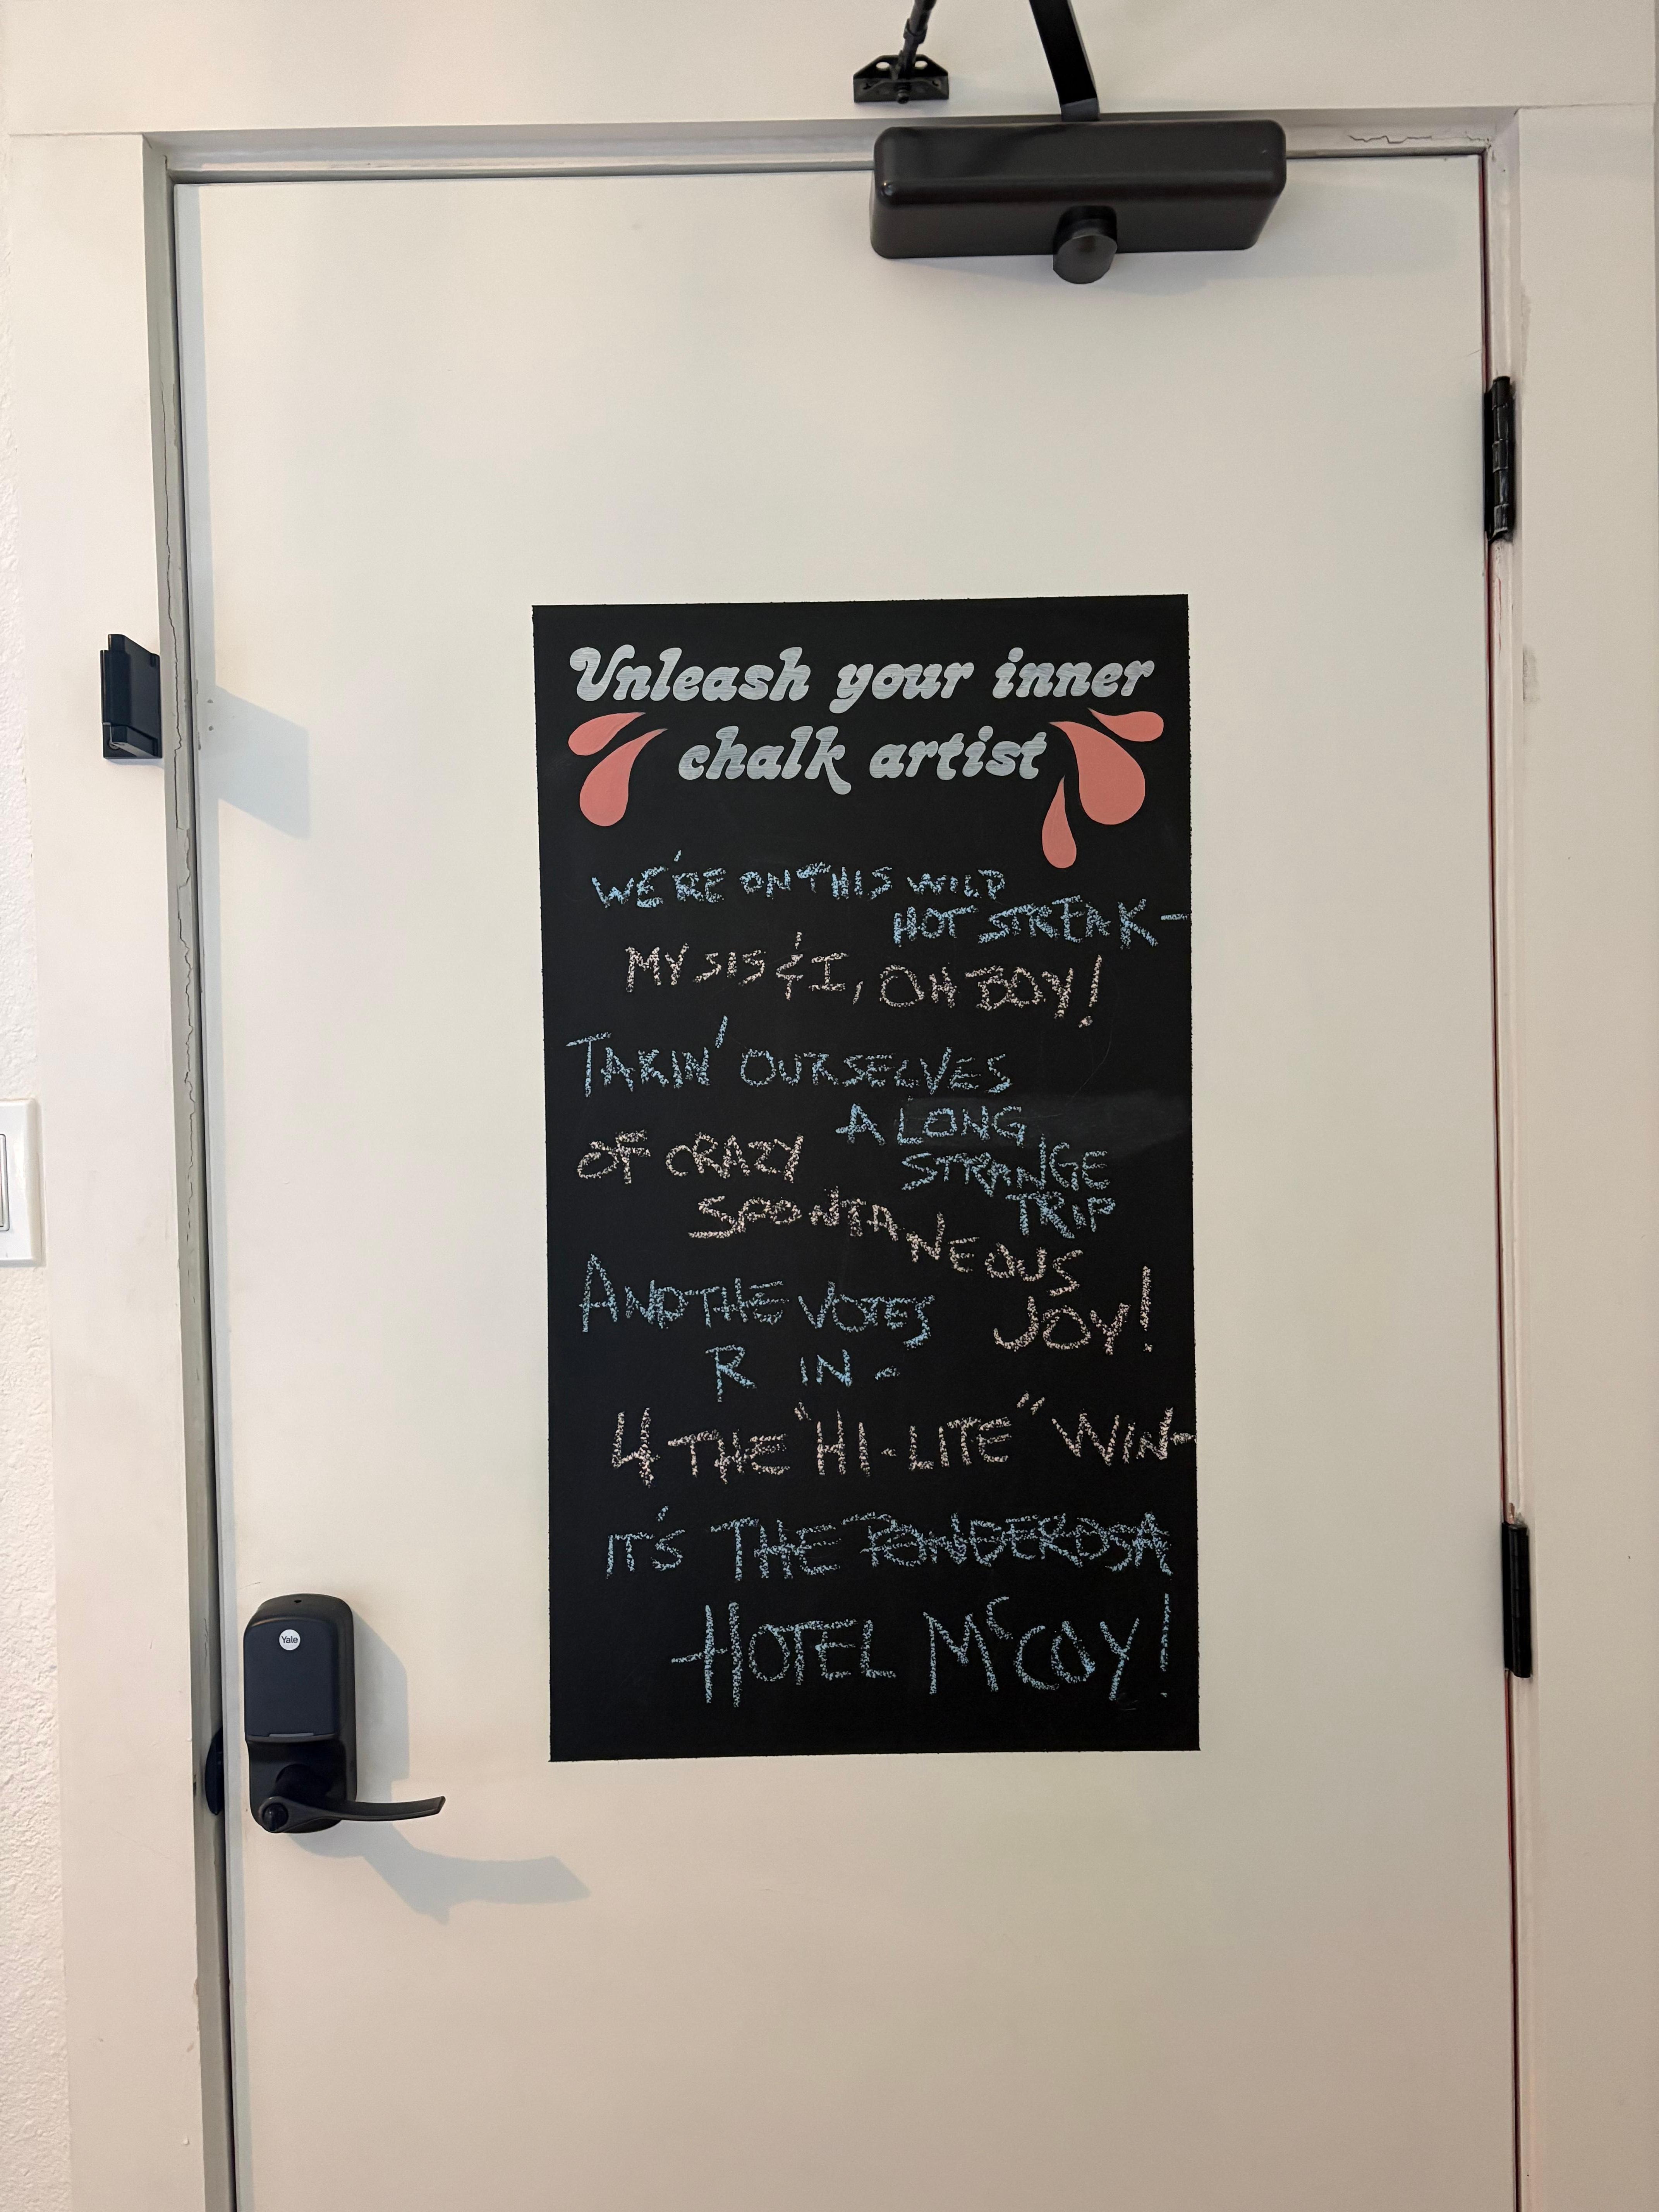 Unleash your inner
chalk artist
WE'RE ON THIS WILD
HOT STREAK-
MY SIS & I, OH BOY!
TAKIN' OURSELVES
A LONG
STRANGE
TRIP
OF CRAZY
SPONTANEOUS
JOY!
AND THE VOTES
R IN -
4 THE "HI-LITE" WIN-
IT'S THE PONDEROSA
HOTEL McCOY!
Yale